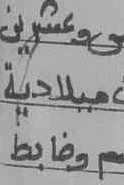 وعشرين
ميلادية
وضابط